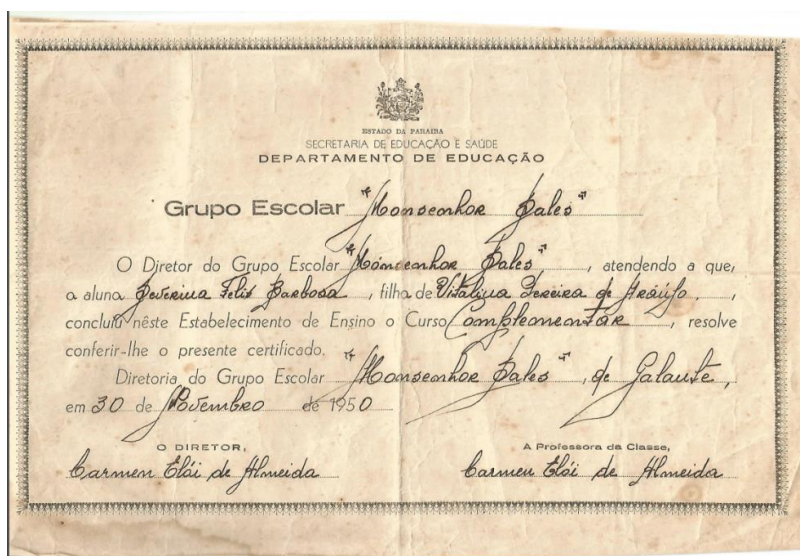 ESTADO DA PARAIBA
SECRETARIA DE EDUCAÇÃO E SAÚDE
DEPARTAMENTO DE EDUCAÇÃO
Grupo Escolar "Monsenhor Sales"
O Diretor do Grupo Escolar "Monsenhor Sales", atendendo a que,
a aluna Severina Felix Barbosa, filha de Vitalina Pereira de Araújo,
concluiu nêste Estabelecimento de Ensino o Curso Complementar, resolve
conferir-lhe o presente certificado.
Diretoria do Grupo Escolar "Monsenhor Sales", de Galante,
em 30 de Novembro de 1950
O DIRETOR,
Carmen Elói de Almeida
A Professora da Classe,
Carmen Elói de Almeida